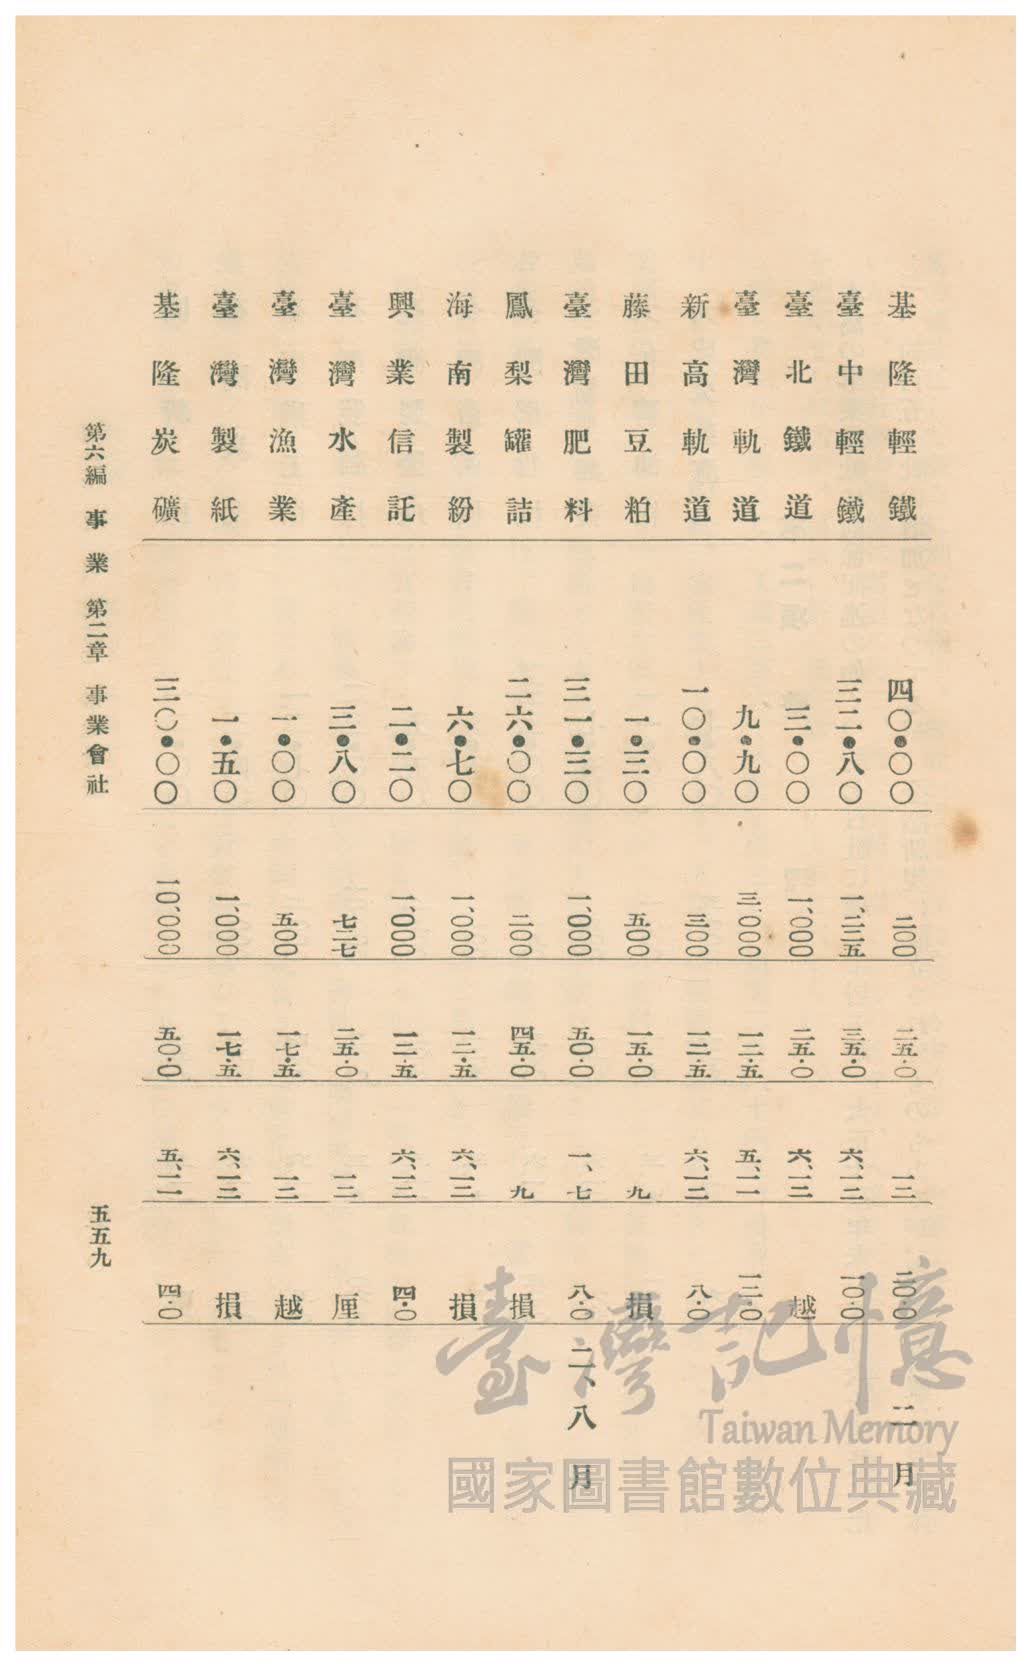 基隆輕鐵 四〇・〇〇 二〇〇 二五・〇 一二 二〇・〇 二月
臺中輕鐵 三二・八〇 一、二二五 三五・〇 六、一二 一〇・〇
臺北鐵道 三・〇〇 一、〇〇〇 二五・〇 六、一二 越
臺灣軌道 九・九〇 三、〇〇〇 一二・五 五、一一 一二・〇
新高軌道 一〇・〇〇 三〇〇 一二・五 六、一二 八・〇
藤田豆粕 一・三〇 五〇〇 一五・〇 九 損
臺灣肥料 三一・三〇 一、〇〇〇 五〇・〇 一、七 八・〇 二、八月
鳳梨罐詰 二六・〇〇 二〇〇 四五・〇 九 損
海南製紛 六・七〇 一、〇〇〇 一二・五 六、一二 損
興業信託 二・二〇 一、〇〇〇 一二・五 六、一二 四・〇
臺灣水產 三・八〇 七二七 二五・〇 一二 厘
臺灣漁業 一・〇〇 五〇〇 一七・五 一二 越
臺灣製紙 一・五〇 一、〇〇〇 一七・五 六、一二 損
基隆炭礦 三〇・〇〇 一〇、〇〇〇 五〇・〇 五、一一 四・〇
第六編 事業 第二章 事業會社 五五九
臺灣記憶
Taiwan Memory
國家圖書館數位典藏